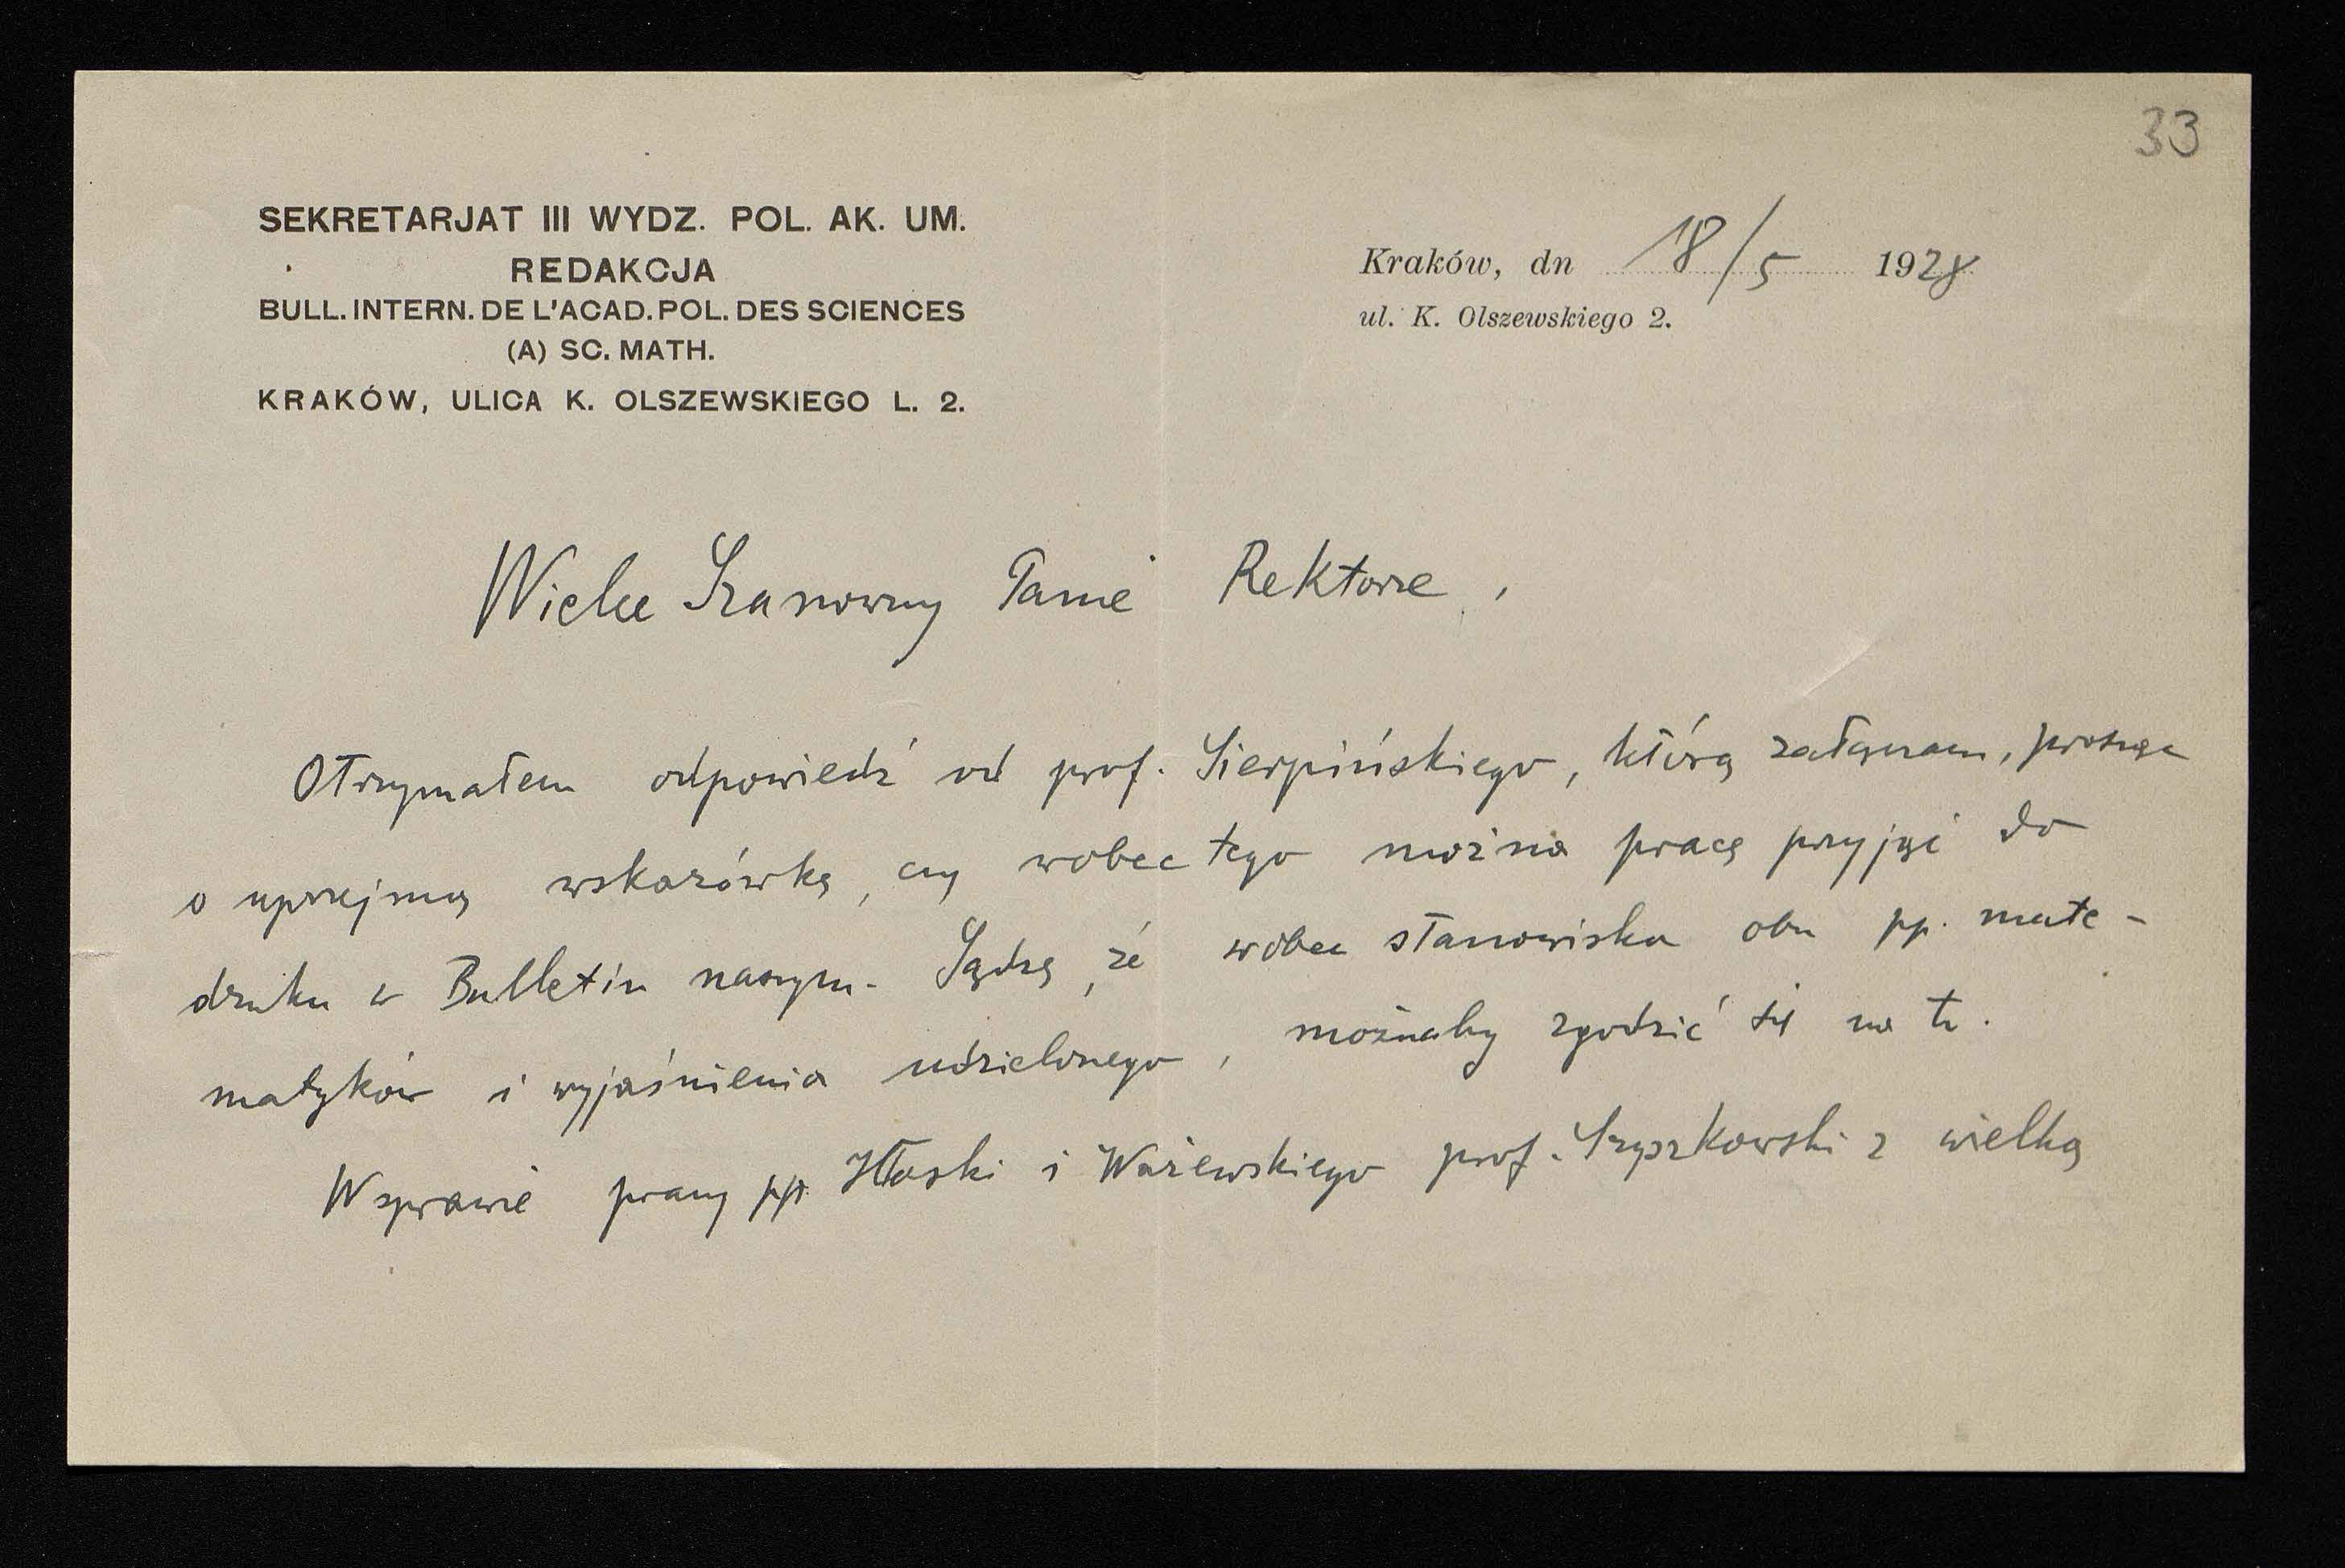 33
SEKRETARJAT III WYDZ. POL. AK. UM.
REDAKCJA
BULL. INTERN. DE L'ACAD. POL. DES SCIENCES
(A) SC. MATH.
KRAKÓW, ULICA K. OLSZEWSKIEGO L. 2.
Kraków, dn 18/5 1928
ul. K. Olszewskiego 2.
Wielce Szanowny Panie Rektorze,
Otrzymałem odpowiedź od prof. Sierpińskiego, którą załączam, prosząc
o uprzejmą wskazówkę, czy wobec tego można pracę przyjąć do
druku w Bulletin naszym. Sądzę, że wobec stanowiska obu pp. mate-
matyków i wyjaśnienia udzielonego, możnaby zgodzić się na to.
W sprawie pracy pp. Hłaski i Ważewskiego prof. Szyszkowski z wielką